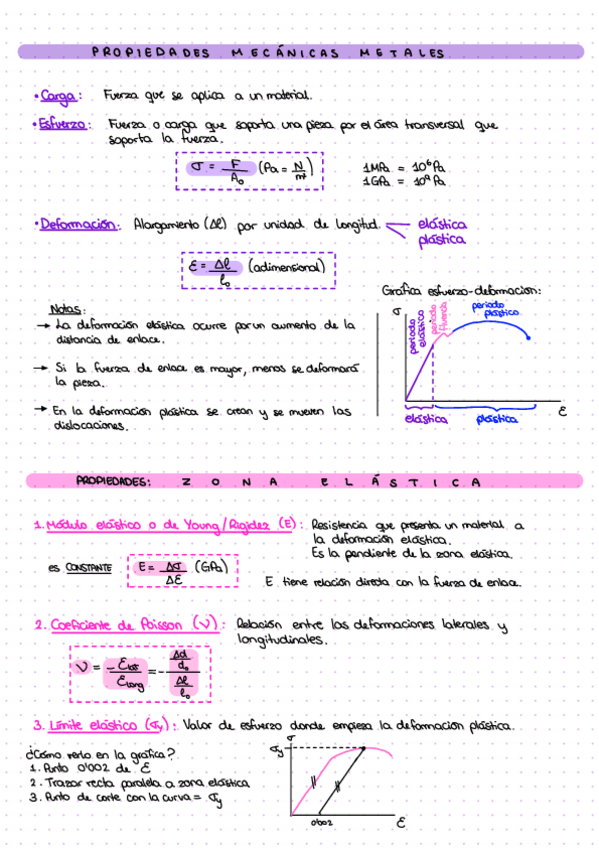 PROPIEDADES MECÁNICAS METALES
• Carga: Fuerza que se aplica a un material.
• Esfuerzo: Fuerza o carga que soporta una pieza por el área transversal que
soporta la fuerza.
σ = F / A₀ (Pa = N / m²)
1MPa = 10⁶ Pa
1GPa = 10⁹ Pa
• Deformación: Alargamiento (Δl) por unidad de longitud.
elástica
plástica
ε = Δl / l₀ (adimensional)
Notas:
→ La deformación elástica ocurre por un aumento de la
distancia de enlace.
→ Si la fuerza de enlace es mayor, menos se deformará
la pieza.
→ En la deformación plástica se crean y se mueven las
dislocaciones.
Gráfica esfuerzo-deformación:
σ
periodo elástico
periodo fluencia
periodo plástico
ε
elástica
plástica
PROPIEDADES: ZONA ELÁSTICA
1. Módulo elástico o de Young/Rigidez (E): Resistencia que presenta un material a
la deformación elástica.
Es la pendiente de la zona elástica.
es CONSTANTE E = Δσ / Δε (GPa)
E tiene relación directa con la fuerza de enlace.
2. Coeficiente de Poisson (ν): Relación entre las deformaciones laterales y
longitudinales.
ν = -εlat / εlong = - Δd / d₀ / Δl / l₀
3. Límite elástico (σy): Valor de esfuerzo donde empieza la deformación plástica.
¿Cómo verlo en la gráfica?
1. Punto 0'002 de ε
2. Trazar recta paralela a zona elástica
3. Punto de corte con la curva = σy
σ
σy
0'002
ε